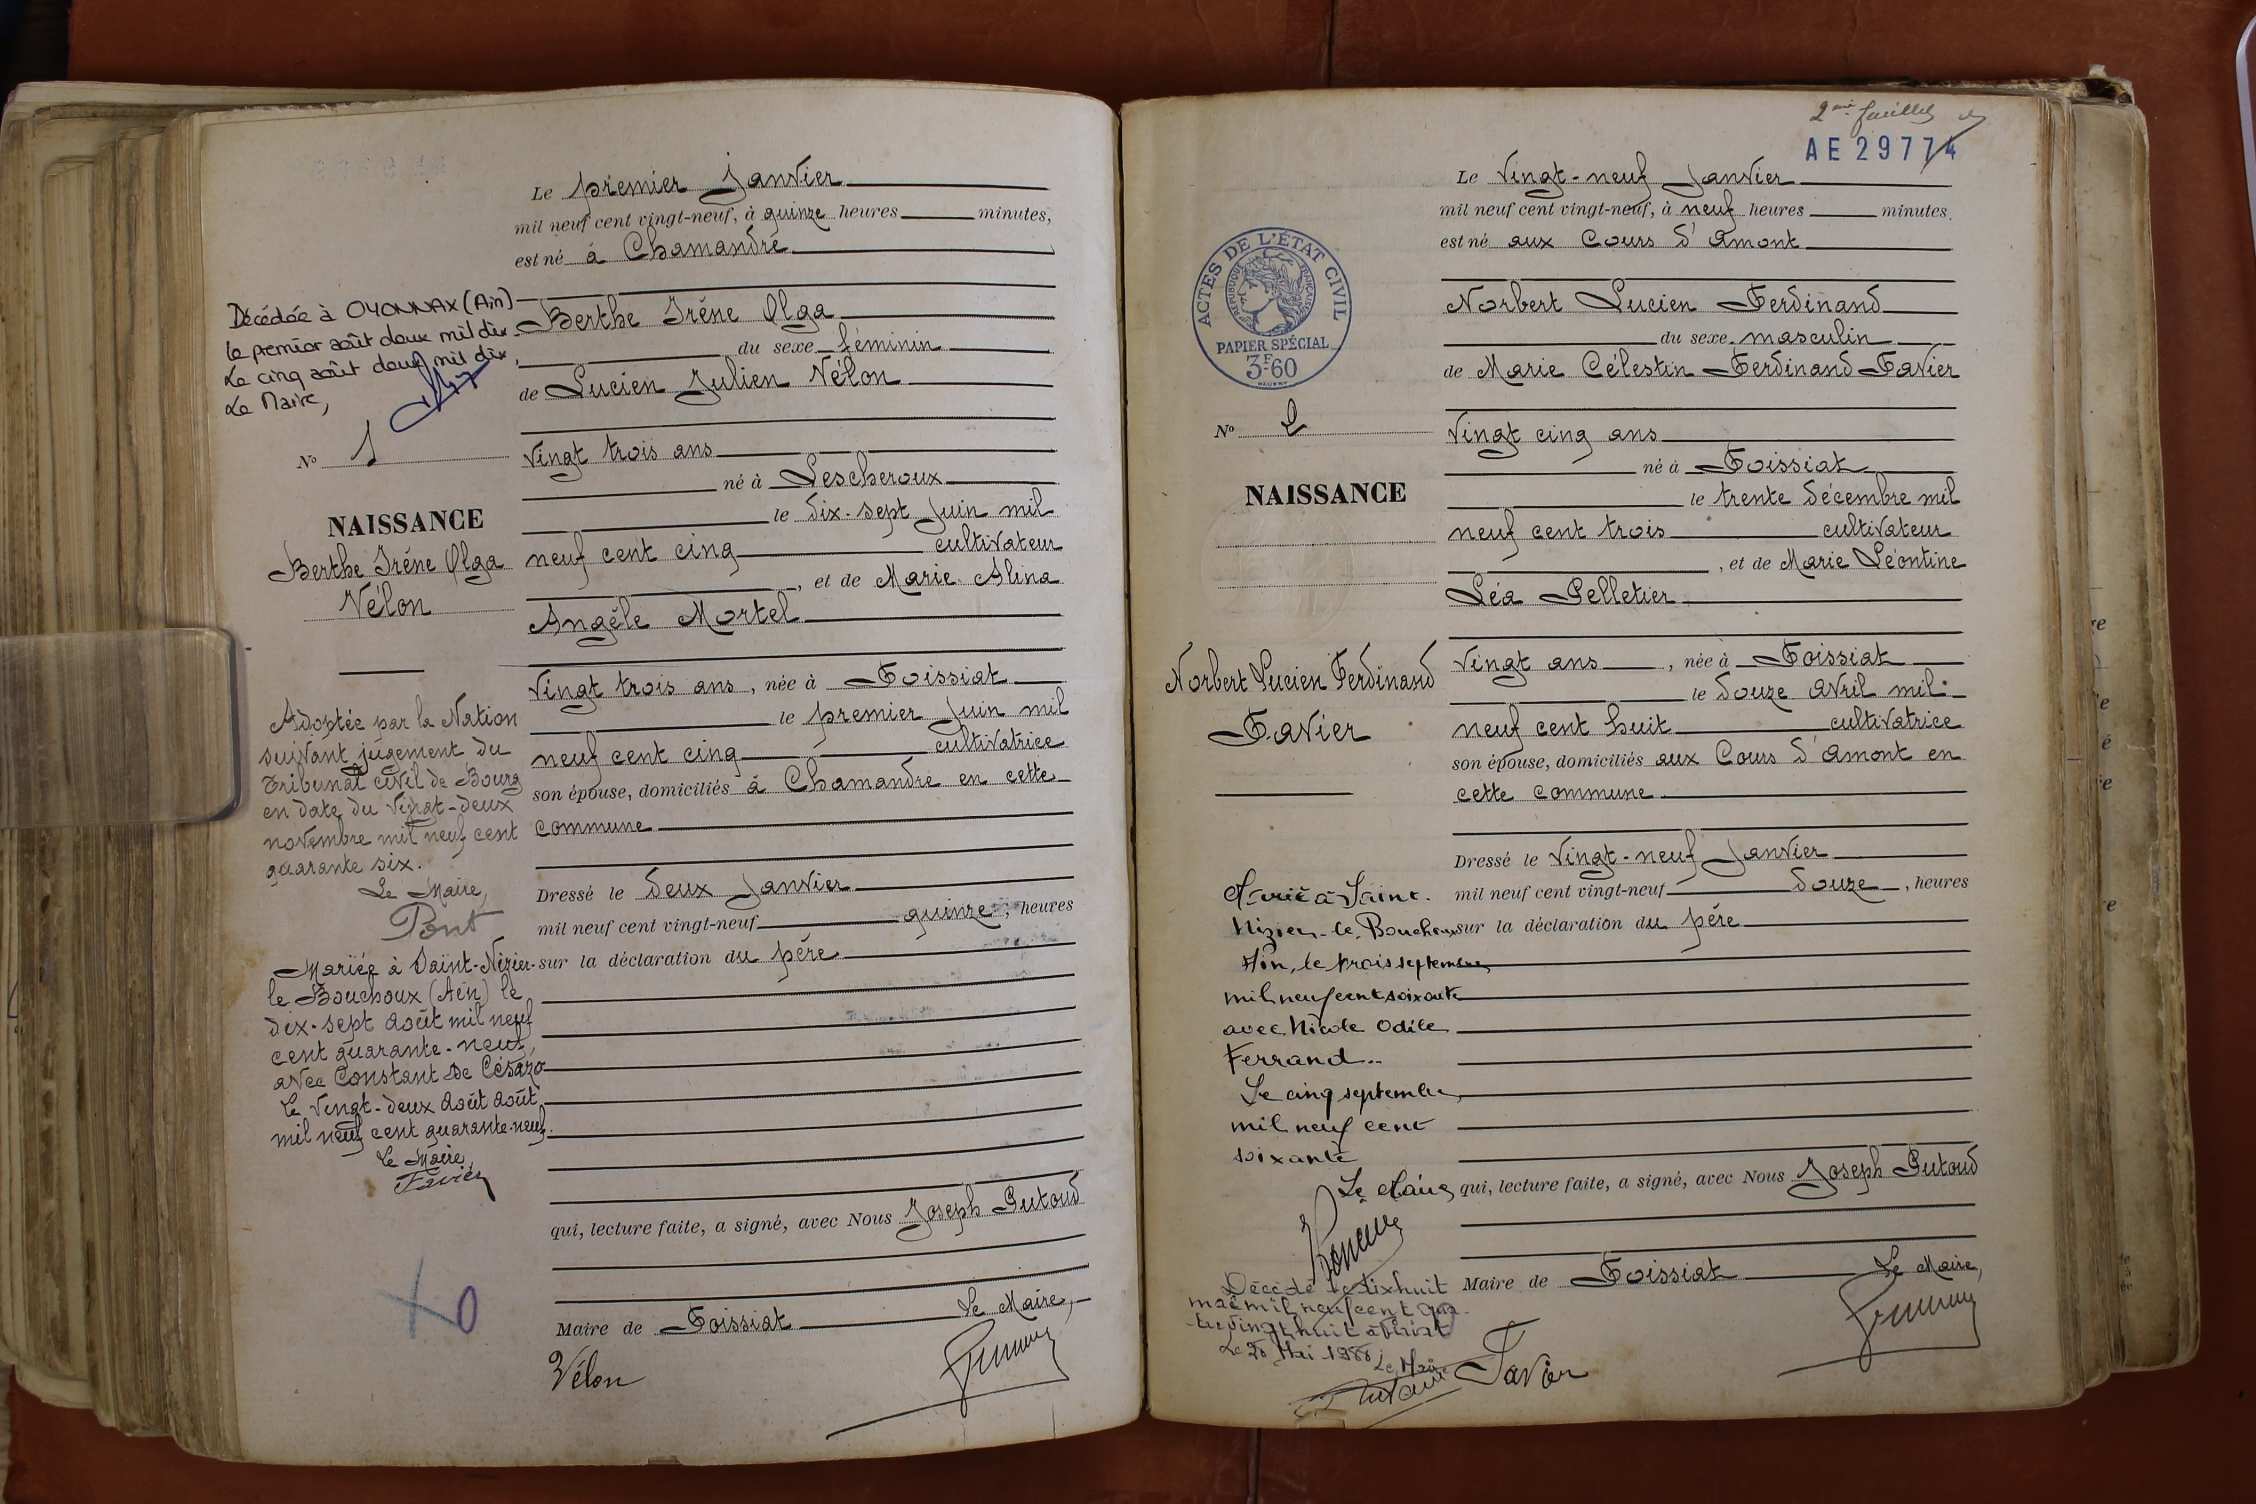 Le premier Janvier
mil neuf cent vingt-neuf, à quinze heures minutes,
est né à Chamandré
Berthe Irène Olga
du sexe féminin
de Lucien Julien Vélon
vingt trois ans
né à Lescheroux
le dix-sept Juin mil
neuf cent cinq cultivateur
, et de Marie Alina
Angèle Mortel
vingt trois ans, née à Foissiat
le premier Juin mil
neuf cent cinq cultivatrice
son épouse, domiciliés à Chamandré en cette
commune
Dressé le deux Janvier
mil neuf cent vingt-neuf quinze, heures
sur la déclaration du père
qui, lecture faite, a signé, avec Nous Joseph Putoud
Maire de Foissiat Le Maire,
Vélon
Décédée à OYONNAX (Ain)
le premier août deux mil dix.
Le cinq août deux mil dix,
Le Maire,
No 1
NAISSANCE
Berthe Irène Olga
Vélon
Adoptée par la Nation
suivant jugement du
Tribunal civil de Bourg
en date du vingt-deux
novembre mil neuf cent
quarante six.
Le Maire,
Pont
Mariée à Saint-Nizier-
le Bouchoux (Ain) le
dix-sept août mil neuf
cent quarante-neuf,
avec Constant De Césaro
Le vingt-deux août août
mil neuf cent quarante-neuf.
Le Maire,
Favier
2me feuillet
AE 29774
Le vingt-neuf Janvier
mil neuf cent vingt-neuf, à neuf heures minutes.
est né aux Cours d'Amont
Norbert Lucien Ferdinand
du sexe masculin
de Marie Célestin Ferdinand Favier
vingt cinq ans
né à Foissiat
le trente décembre mil
neuf cent trois cultivateur
, et de Marie Léontine
Léa Pelletier
vingt ans, née à Foissiat
le douze avril mil
neuf cent huit cultivatrice
son épouse, domiciliés aux Cours d'Amont en
cette commune
Dressé le vingt-neuf Janvier
mil neuf cent vingt-neuf douze, heures
sur la déclaration du père
qui, lecture faite, a signé, avec Nous Joseph Putoud
Maire de Foissiat Le Maire,
Favier
ACTES DE L'ÉTAT CIVIL
RÉPUBLIQUE FRANÇAISE
PAPIER SPÉCIAL
3F60
No 2
NAISSANCE
Norbert Lucien Ferdinand
Favier
Marié à Saint-
Nizier-le-Bouchoux
Ain, le trois septembre
mil neuf cent soixante
avec Nicole Odile
Ferrand..
Le cinq septembre
mil neuf cent
soixante
Le Maire
Décédé le dix huit
mai mil neuf cent qua-
tre vingt huit à Viriat
Le 20 Mai 1988
Le Maire